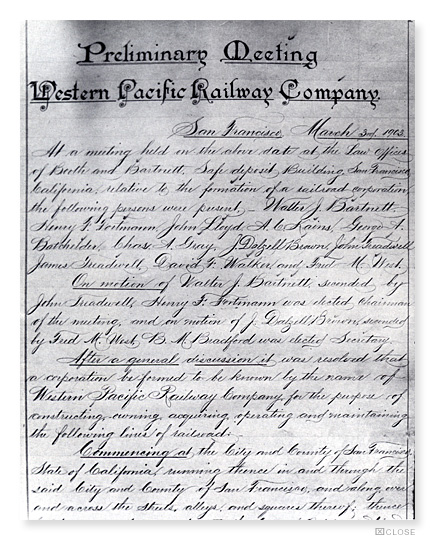 Preliminary Meeting
Western Pacific Railway Company.
San Francisco, March 3rd, 1903.
At a meeting held on the above date at the Law Offices
of Booth and Bartnett, Safe deposit Building, San Francisco
California, relative to the formation of a railroad corporation
the following persons were present, Walter J. Bartnett,
Henry F. Fortmann, John Lloyd, A. C. Kains, George A.
Batchelder, Chas. A. Gray, J. Dalzell Brown, John Treadwell
James Treadwell, David F. Walker, and Fred M. West.
On motion of Walter J. Bartnett, seconded by
John Treadwell, Henry F. Fortmann was elected Chairman
of the meeting, and on motion of J. Dalzell Brown, seconded
by Fred M. West, B. M. Bradford was elected Secretary.
After a general discussion it was resolved that
a corporation be formed to be known by the name of
Western Pacific Railway Company, for the purpose of
constructing, owning, acquiring, operating and maintaining
the following lines of railroad:
Commencing at the City and County of San Francisco,
State of California, running thence in and through the
said City and County of San Francisco, and along, over
and across the streets, alleys, and squares thereof; thence
CLOSE